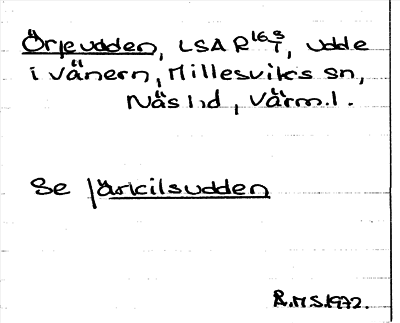 Örjeudden, LSA R 16 8/7, udde
i Vänern, Millesviks sn,
Näs hd, Värml.
Se Järkilsudden
R.M S.1972.